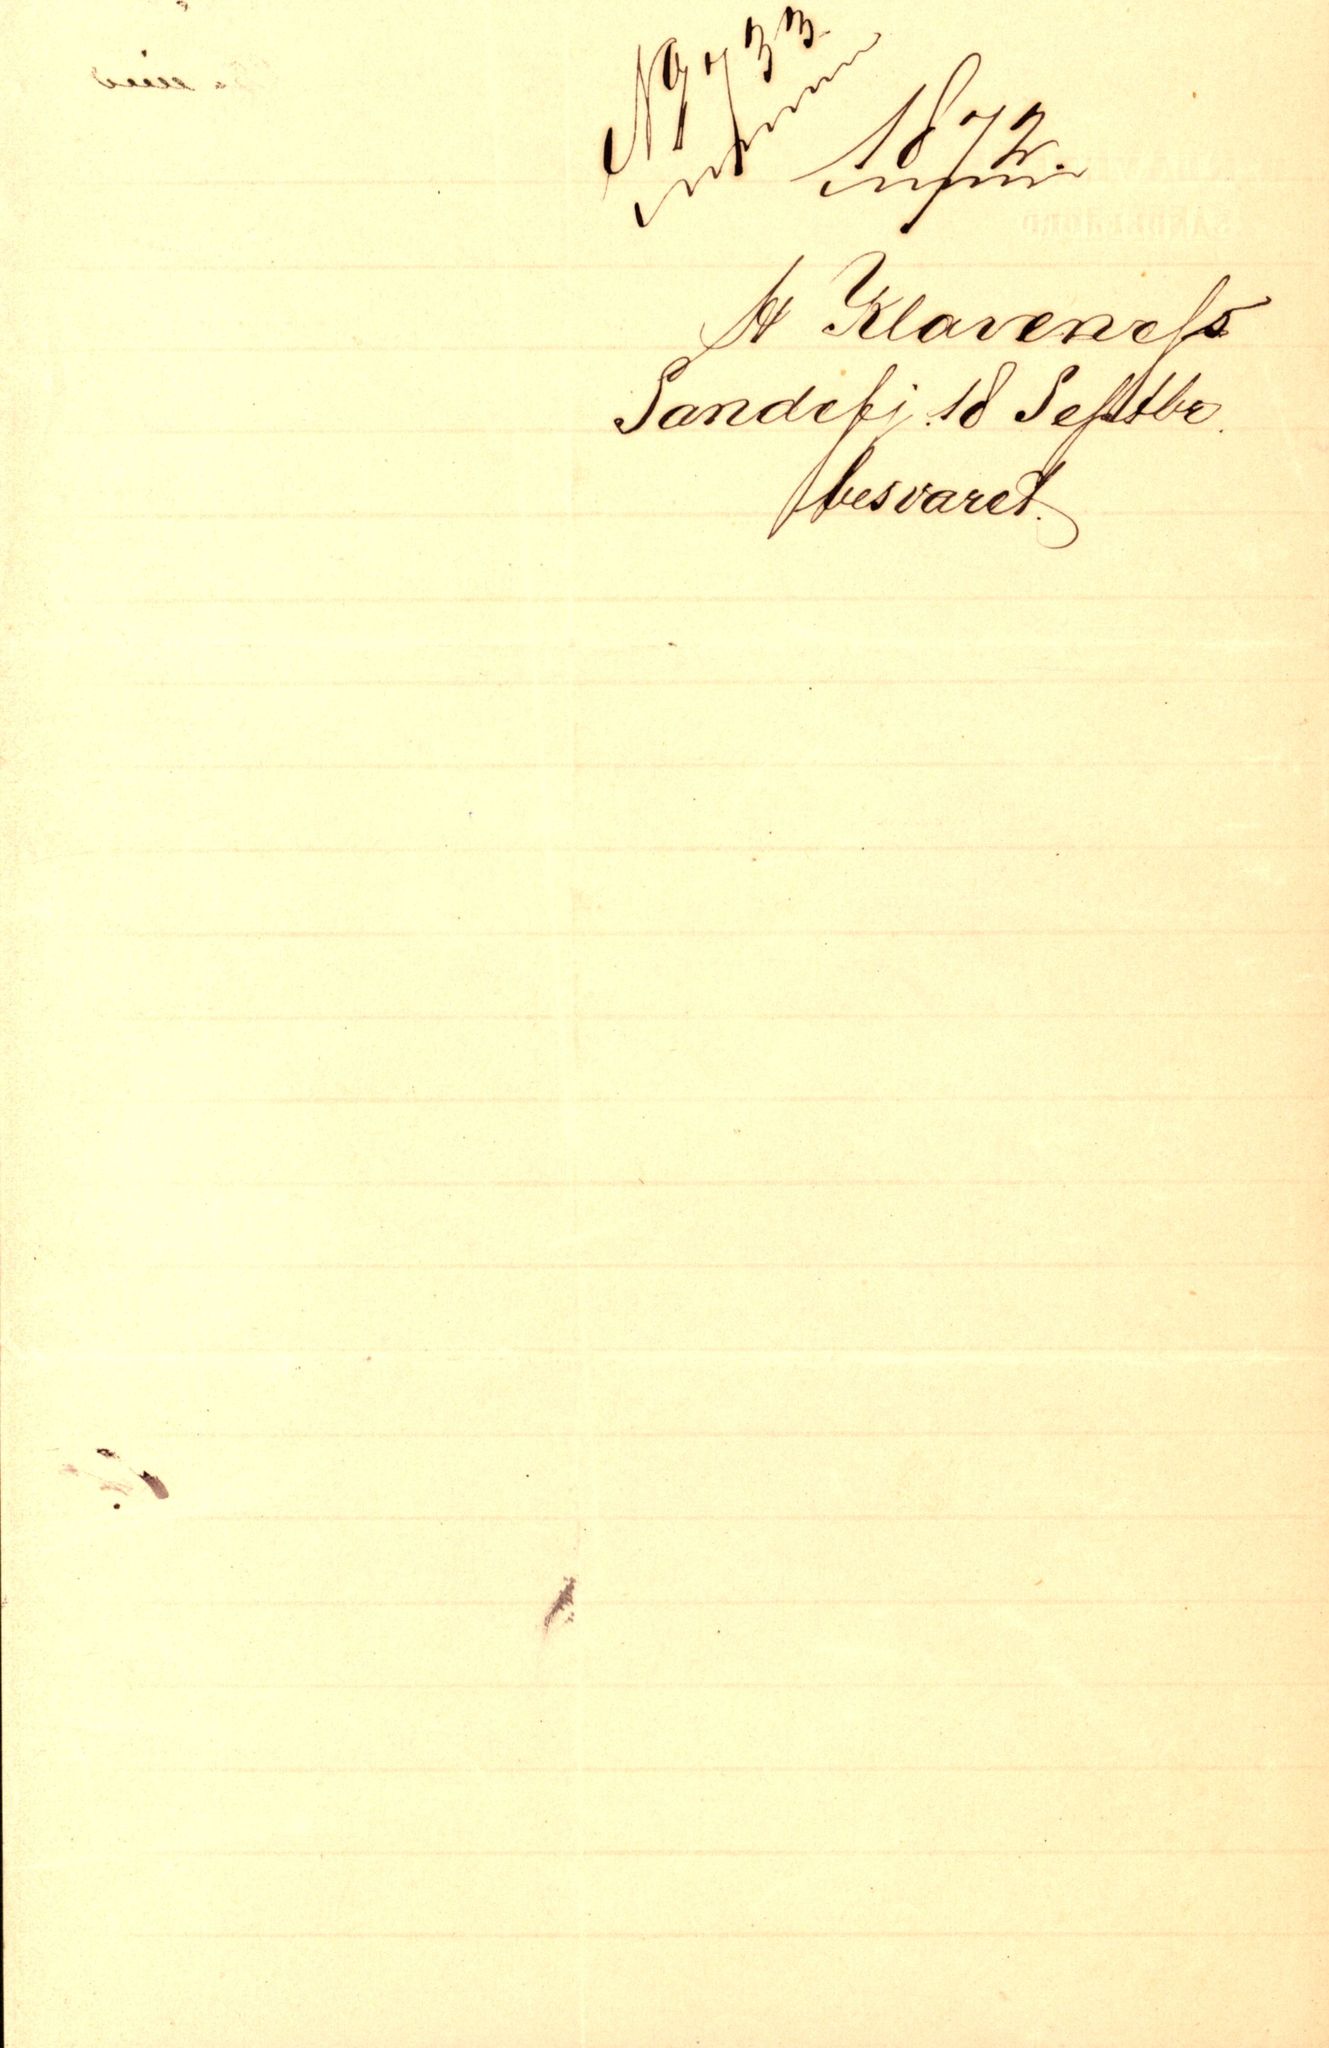 No 733
1872.
A Klaveness
Sandefj. 18 Septbr.
besvaret.